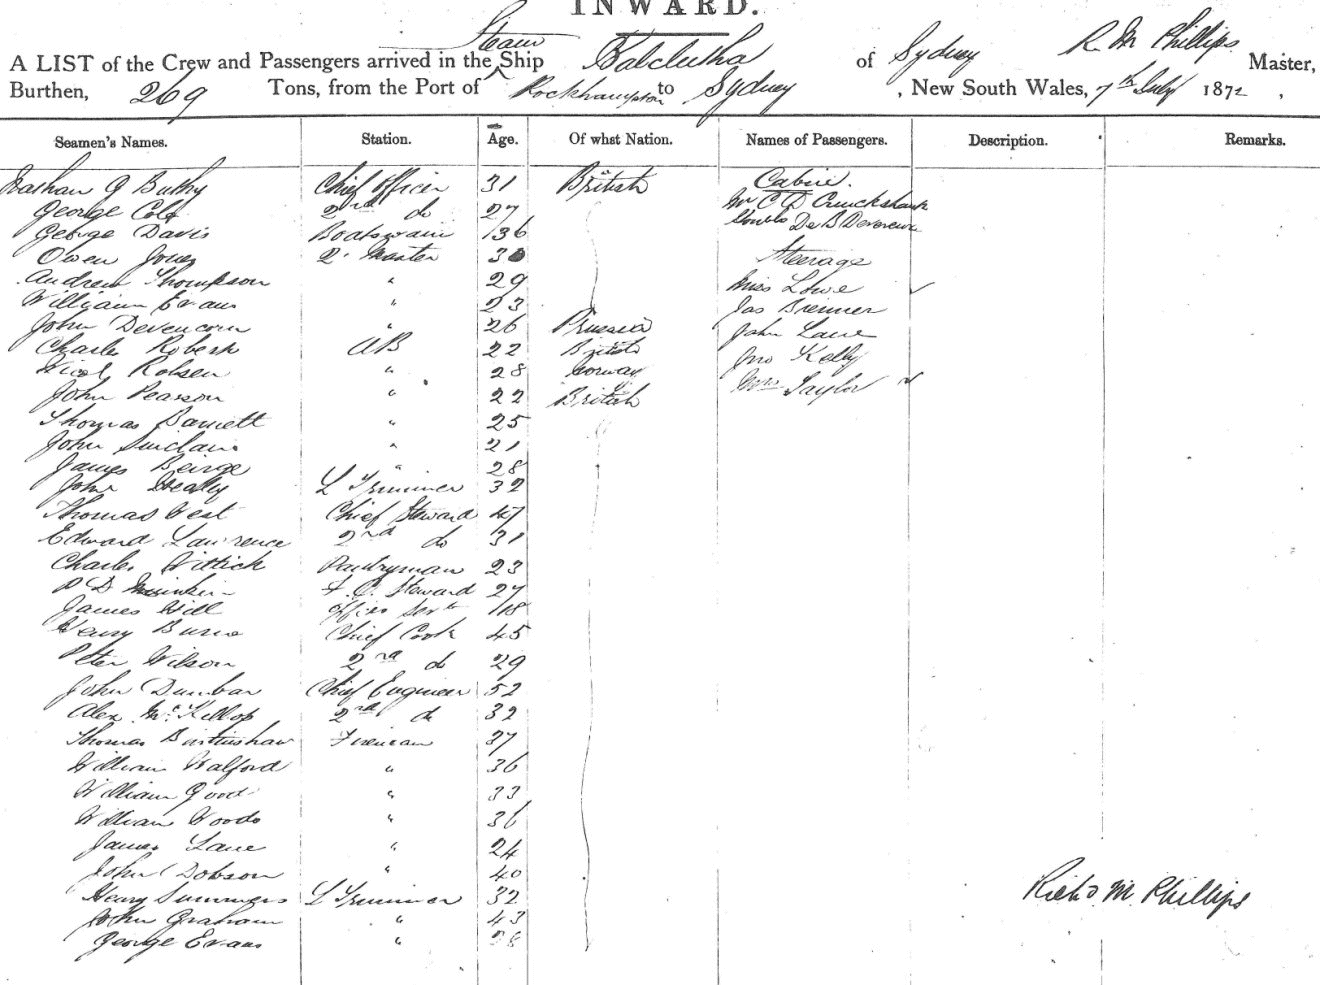 INWARD.
A LIST of the Crew and Passengers arrived in the Steam Ship Balclutha of Sydney R. M Phillips Master,
Burthen, 269 Tons, from the Port of Rockhampton to Sydney, New South Wales, 7th July 1872,
Seamen's Names. Station. Age. Of what Nation. Names of Passengers. Description. Remarks.
G Chief Officer 31 British Cabin.
George Cole 2nd do 27 Mr C D Cruickshank
George Davis Boatswain 36 De B Devereux
Owen Jones 2 Master 30 Steerage
Andrew Thompson " 29 Miss Lowe
William Evans " 23 Jas Brenner
John " 26 Prussia John Lane
Charles Roberts AB 22 British Jno Kelly
Robsen " 28 Norway Mrs Taylor
John Pearson " 22 British
Thomas Barnett " 25
John Sinclair " 21
James " 28
John Healy L Trimmer 32
Thomas West Chief Steward 47
Edward Lawrence 2nd do 31
Charles Pantryman 23
P D Steward 27
James Hill 18
Henry Burne Chief Cook 45
Peter Wilson 2nd do 29
John Dunbar Chief Engineer 52
Alex McKillop 2nd do 32
Thomas Fireman 37
William Walford " 36
William Good " 33
William Woods " 36
James Lane " 24
John Dobson " 40
Henry Summers L Trimmer 32
John Graham " 43
George Evans " 28
Richd. M. Phillips